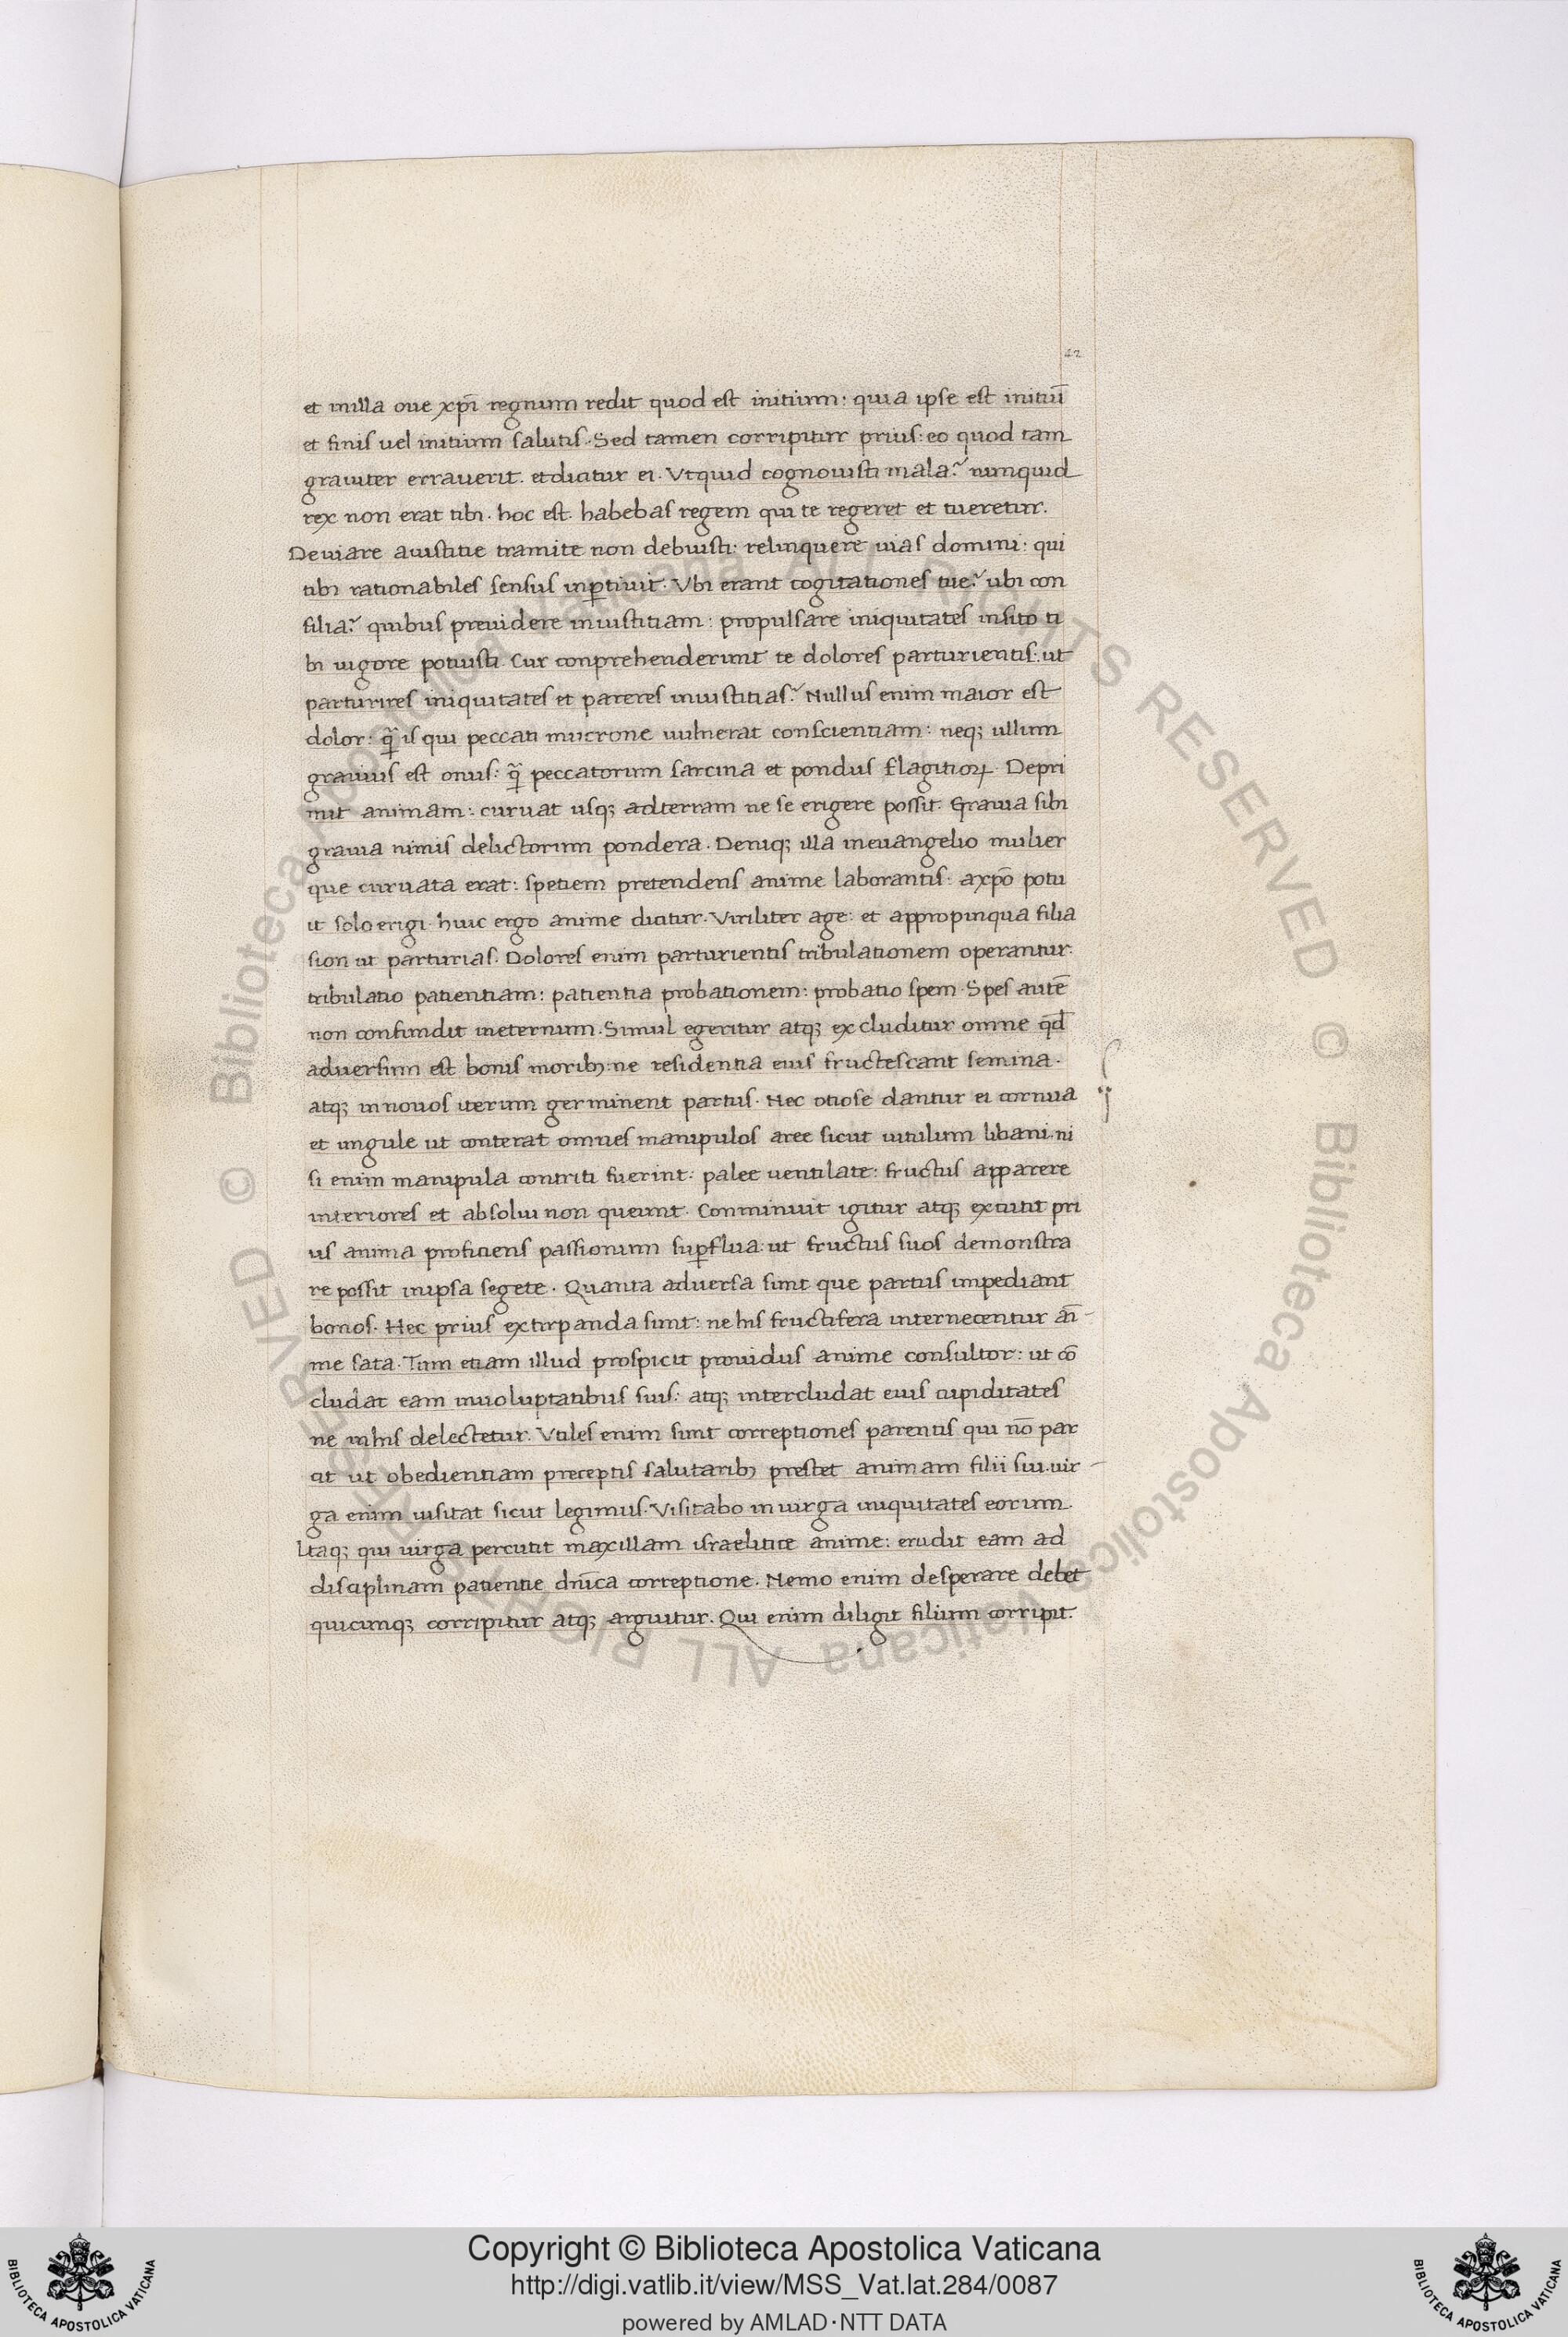 42
et inilla oue xpi̅ regnum redit quod est initium: quia ipse est initiu̅
et finis uel initium salutis. Sed tamen corripitur prius: eo quod tam
grauiter errauerit. etdicitur ei. Vtquid cognouisti mala? nunquid
rex non erat tibi. hoc est. habebas regem qui te regeret et tueretur.
Deuiare aiustitie tramite non debuisti: relinquere uias domini: qui
tibi rationabiles sensus inꝑtiuit. Vbi erant cogitationes tue? ubi con
silia? quibus preuidere iniustitiam: propulsare iniquitates insito ti
bi uigore potuisti. Cur conprehenderunt te dolores parturientis: ut
parturires iniquitates et pareres iniustitias? Nullus enim maior est
dolor: qua̅ is qui peccati mucrone uulnerat conscientiam: neq; ullum
grauius est onus: qua̅ peccatorum sarcina et pondus flagitioꝝ. Depri
mit animam: curuat usq; adterram ne se erigere possit. Grauia fili
grauia nimis delictorum pondera. Deniq; illa ineuangelio mulier
que curuata erat: spetiem pretendens anime laborantis: axpo̅ potu
it solo erigi. huic ergo anime dicitur. Viriliter age: et appropinqua filia
sion ut parturias. Dolores enim parturientis tribulationem operantur.
tribulatio patientiam: patientia probationem: probatio spem. Spes aute̅
non confundit ineternum. Simul egeritur atq; excluditur omne qd̅
aduersum est bonis morib; ne residentia eius fructescant semina.
atq; innouos iterum germinent partus. Nec otiose dantur ei cornua
et ungule ut conterat omnes manipulos aree sicut uitulum libani. ni
si enim manipula contriti fuerint: palee uentilate: fructus apparere
interiores et absolui non queunt. Conminuit igitur atq; excutit pri
us anima proficiens passionum suꝑflua: ut fructus suos demonstra
re possit inipsa segete. Quanta aduersa sunt que partus impediant
bonos. Hec prius extirpanda sunt: ne his fructifera internecentur ani̅
me sata. Tum etiam illud prospicit prouidus anime consultor: ut co̅
cludat eam inuoluptatibus suis: atq; intercludat eius cupiditates
ne inhis delectetur. Vtiles enim sunt correptiones parentis qui no̅ par
cit ut obedientiam preceptis salutarib; prestet animam filii sui. uir
ga enim uisitat sicut legimus. Visitabo inuirga iniquitates eorum.
Itaq; qui uirga percutit maxillam israelitice anime: erudit eam ad
disciplinam patientie dni̅ca correptione. Nemo enim desperare debet
quicunq; corripitur atq; arguitur. Qui enim diligit filium corripit.
Copyright © Biblioteca Apostolica Vaticana
http://digi.vatlib.it/view/MSS_Vat.lat.284/0087
powered by AMLAD·NTT DATA
© Biblioteca Apostolica Vaticana ALL RIGHTS RESERVED © Biblioteca Apostolica Vaticana ALL RIGHTS RESERVED
BIBLIOTECA APOSTOLICA VATICANA
BIBLIOTECA APOSTOLICA VATICANA